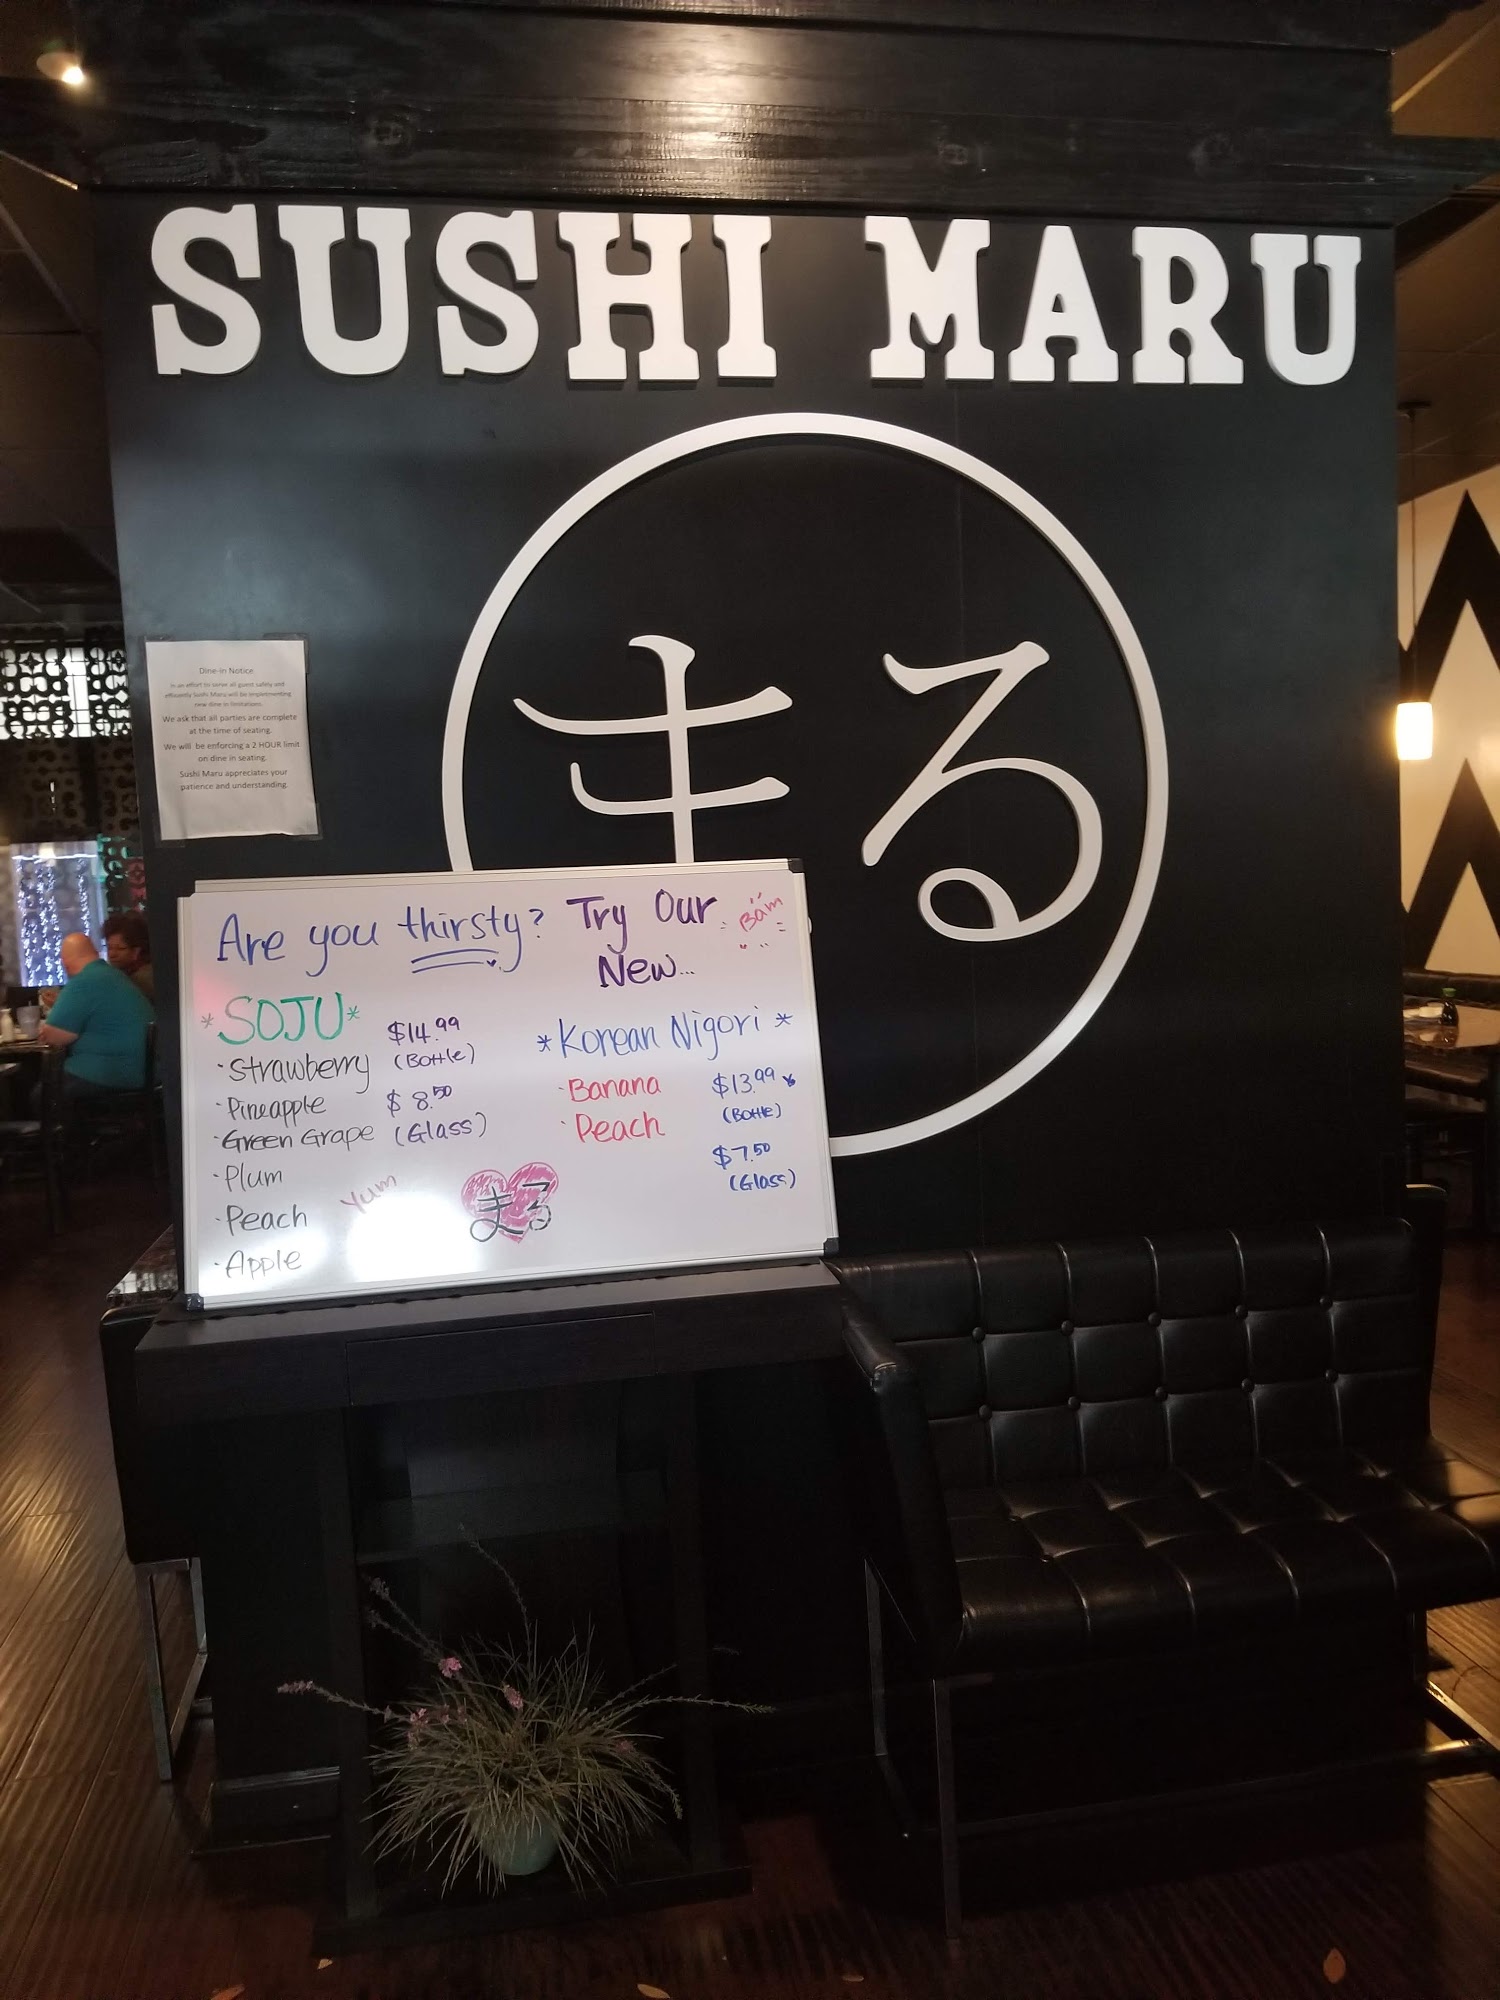 SUSHI MARU
まる
Dine-in Notice
In an effort to serve all guest safely and
efficiently Sushi Maru will be implementing
new dine in limitations.
We ask that all parties are complete
at the time of seating.
We will be enforcing a 2 HOUR limit
on dine in seating.
Sushi Maru appreciates your
patience and understanding.
Are you thirsty? Try Our
New...
Bam
*SOJU*
$14.99
(Bottle)
·Strawberry
·Pineapple
$8.50
(Glass)
·Green Grape
·Plum
·Peach
·Apple
Yum
まる
*Korean Nigori*
·Banana
·Peach
$13.99
(Bottle)
$7.50
(Glass)